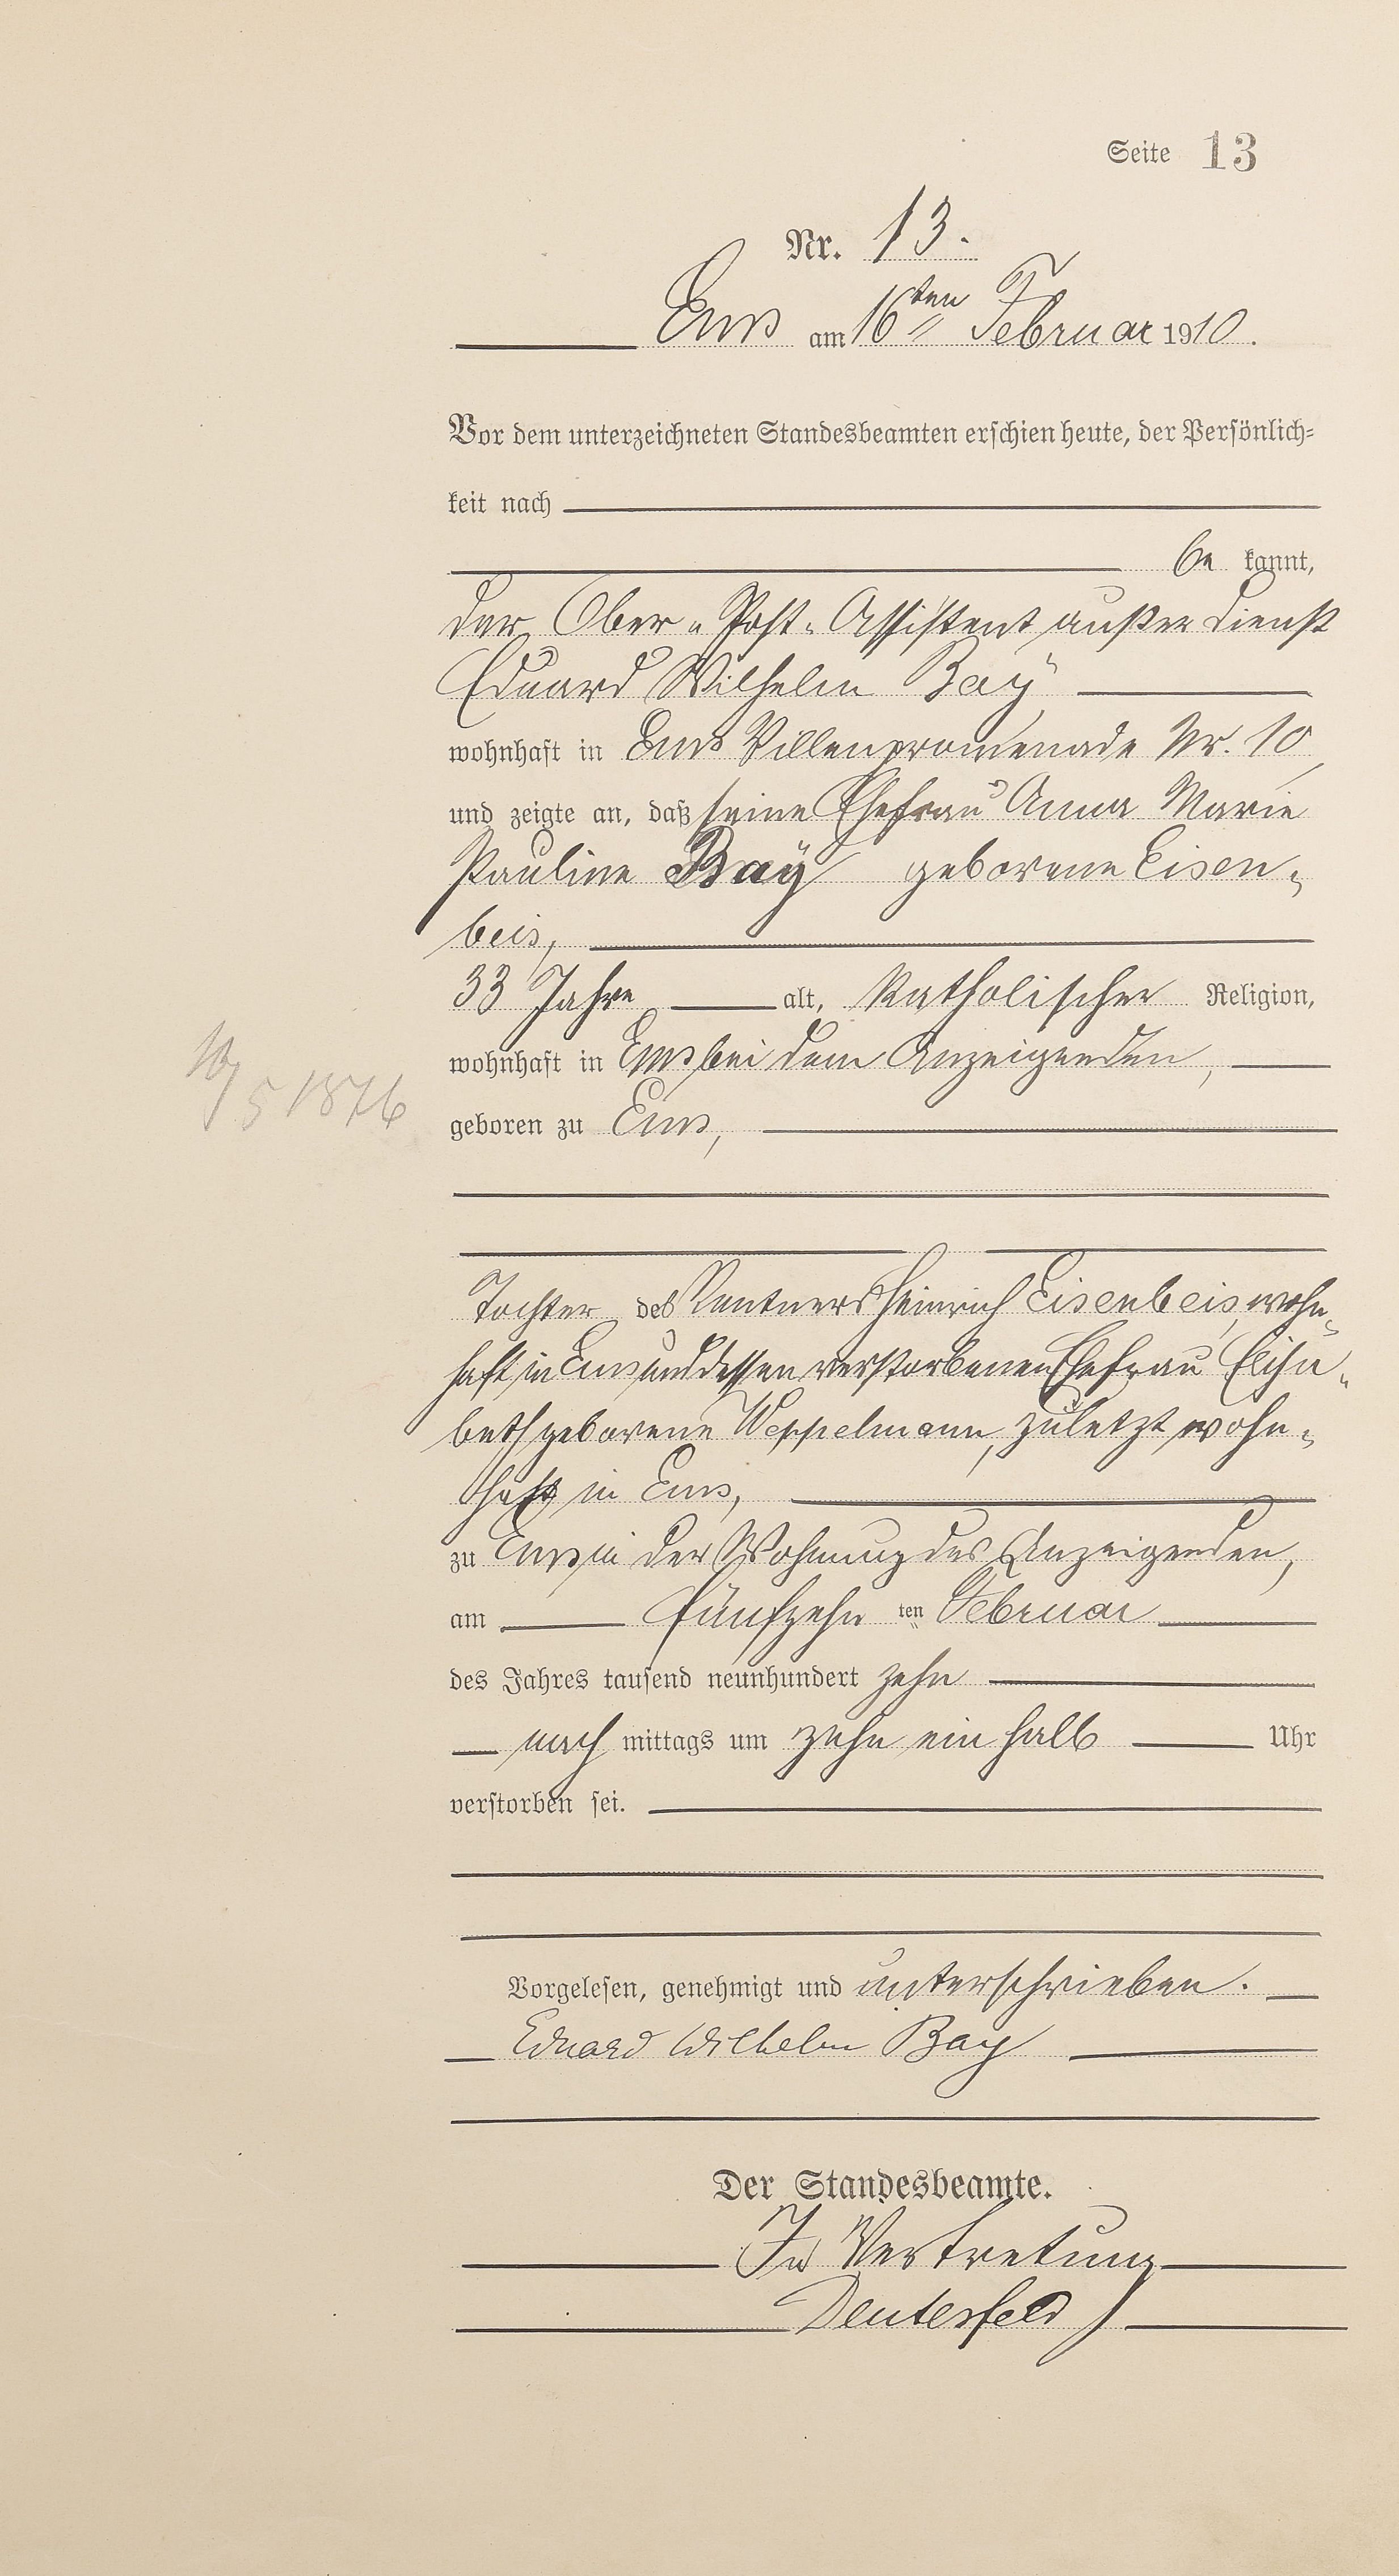 Seite 13
Nr. 13.
Ems am 16ten Februar 1910.
Vor dem unterzeichneten Standesbeamten erschien heute, der Persönlich-
keit nach
be kannt,
der Ober-Post-Assistent außer Dienst
Eduard Wilhelm Bay
wohnhaft in Ems Villenpromenade Nr. 10
und zeigte an, daß seine Ehefrau Anna Marie
Pauline Baÿ geborene Eisen-
beis,
33 Jahre alt, katholischer Religion,
wohnhaft in Ems bei dem Anzeigenden,
10/5 1876
geboren zu Ems,
Tochter des Rentners Heinrich Eisenbeis, wohn-
haft in Ems und dessen verstorbenen Ehefrau Elisa-
beth geborene Weppelmann, zuletzt wohn-
haft in Ems,
zu Ems in der Wohnung des Anzeigenden,
am fünfzehn ten Februar
des Jahres tausend neunhundert zehn
nach mittags um zehn ein halb Uhr
verstorben sei.
Vorgelesen, genehmigt und unterschrieben.
Eduard Wilhelm Bay
Der Standesbeamte.
In Vertretung
Deutesfeld